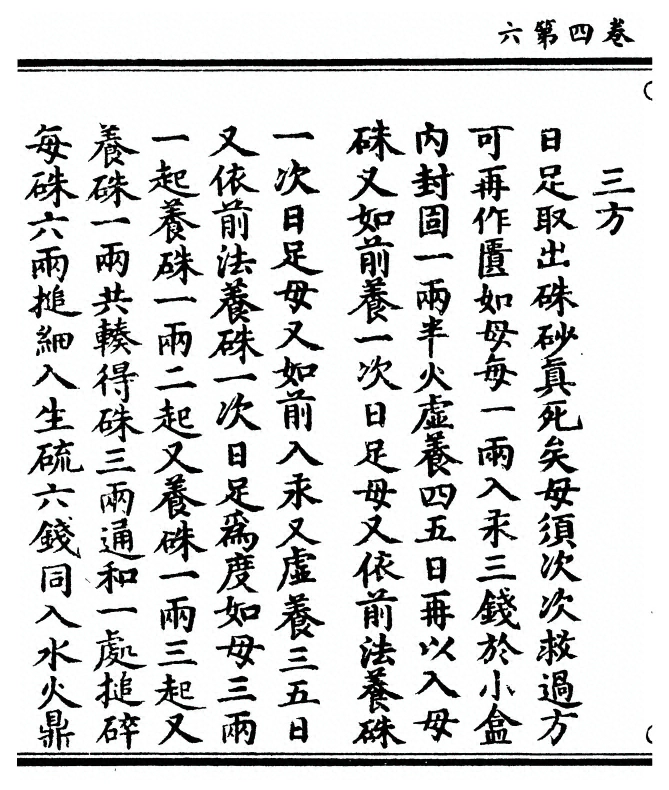 六第四卷
三方
日足取出硃砂眞死矣母須次次救過方
可再作匱如母每一兩入汞三錢於小盒
內封固一兩半火虛養四五日再以入母
硃又如前養一次日足母又依前法養硃
一次日足母又如前入汞又虛養三五日
又依前法養硃一次日足爲度如母三兩
一起養硃一兩二起又養硃一兩三起又
養硃一兩共輳得硃三兩通和一處搥碎
每硃六兩搥細入生硫六錢同入水火鼎